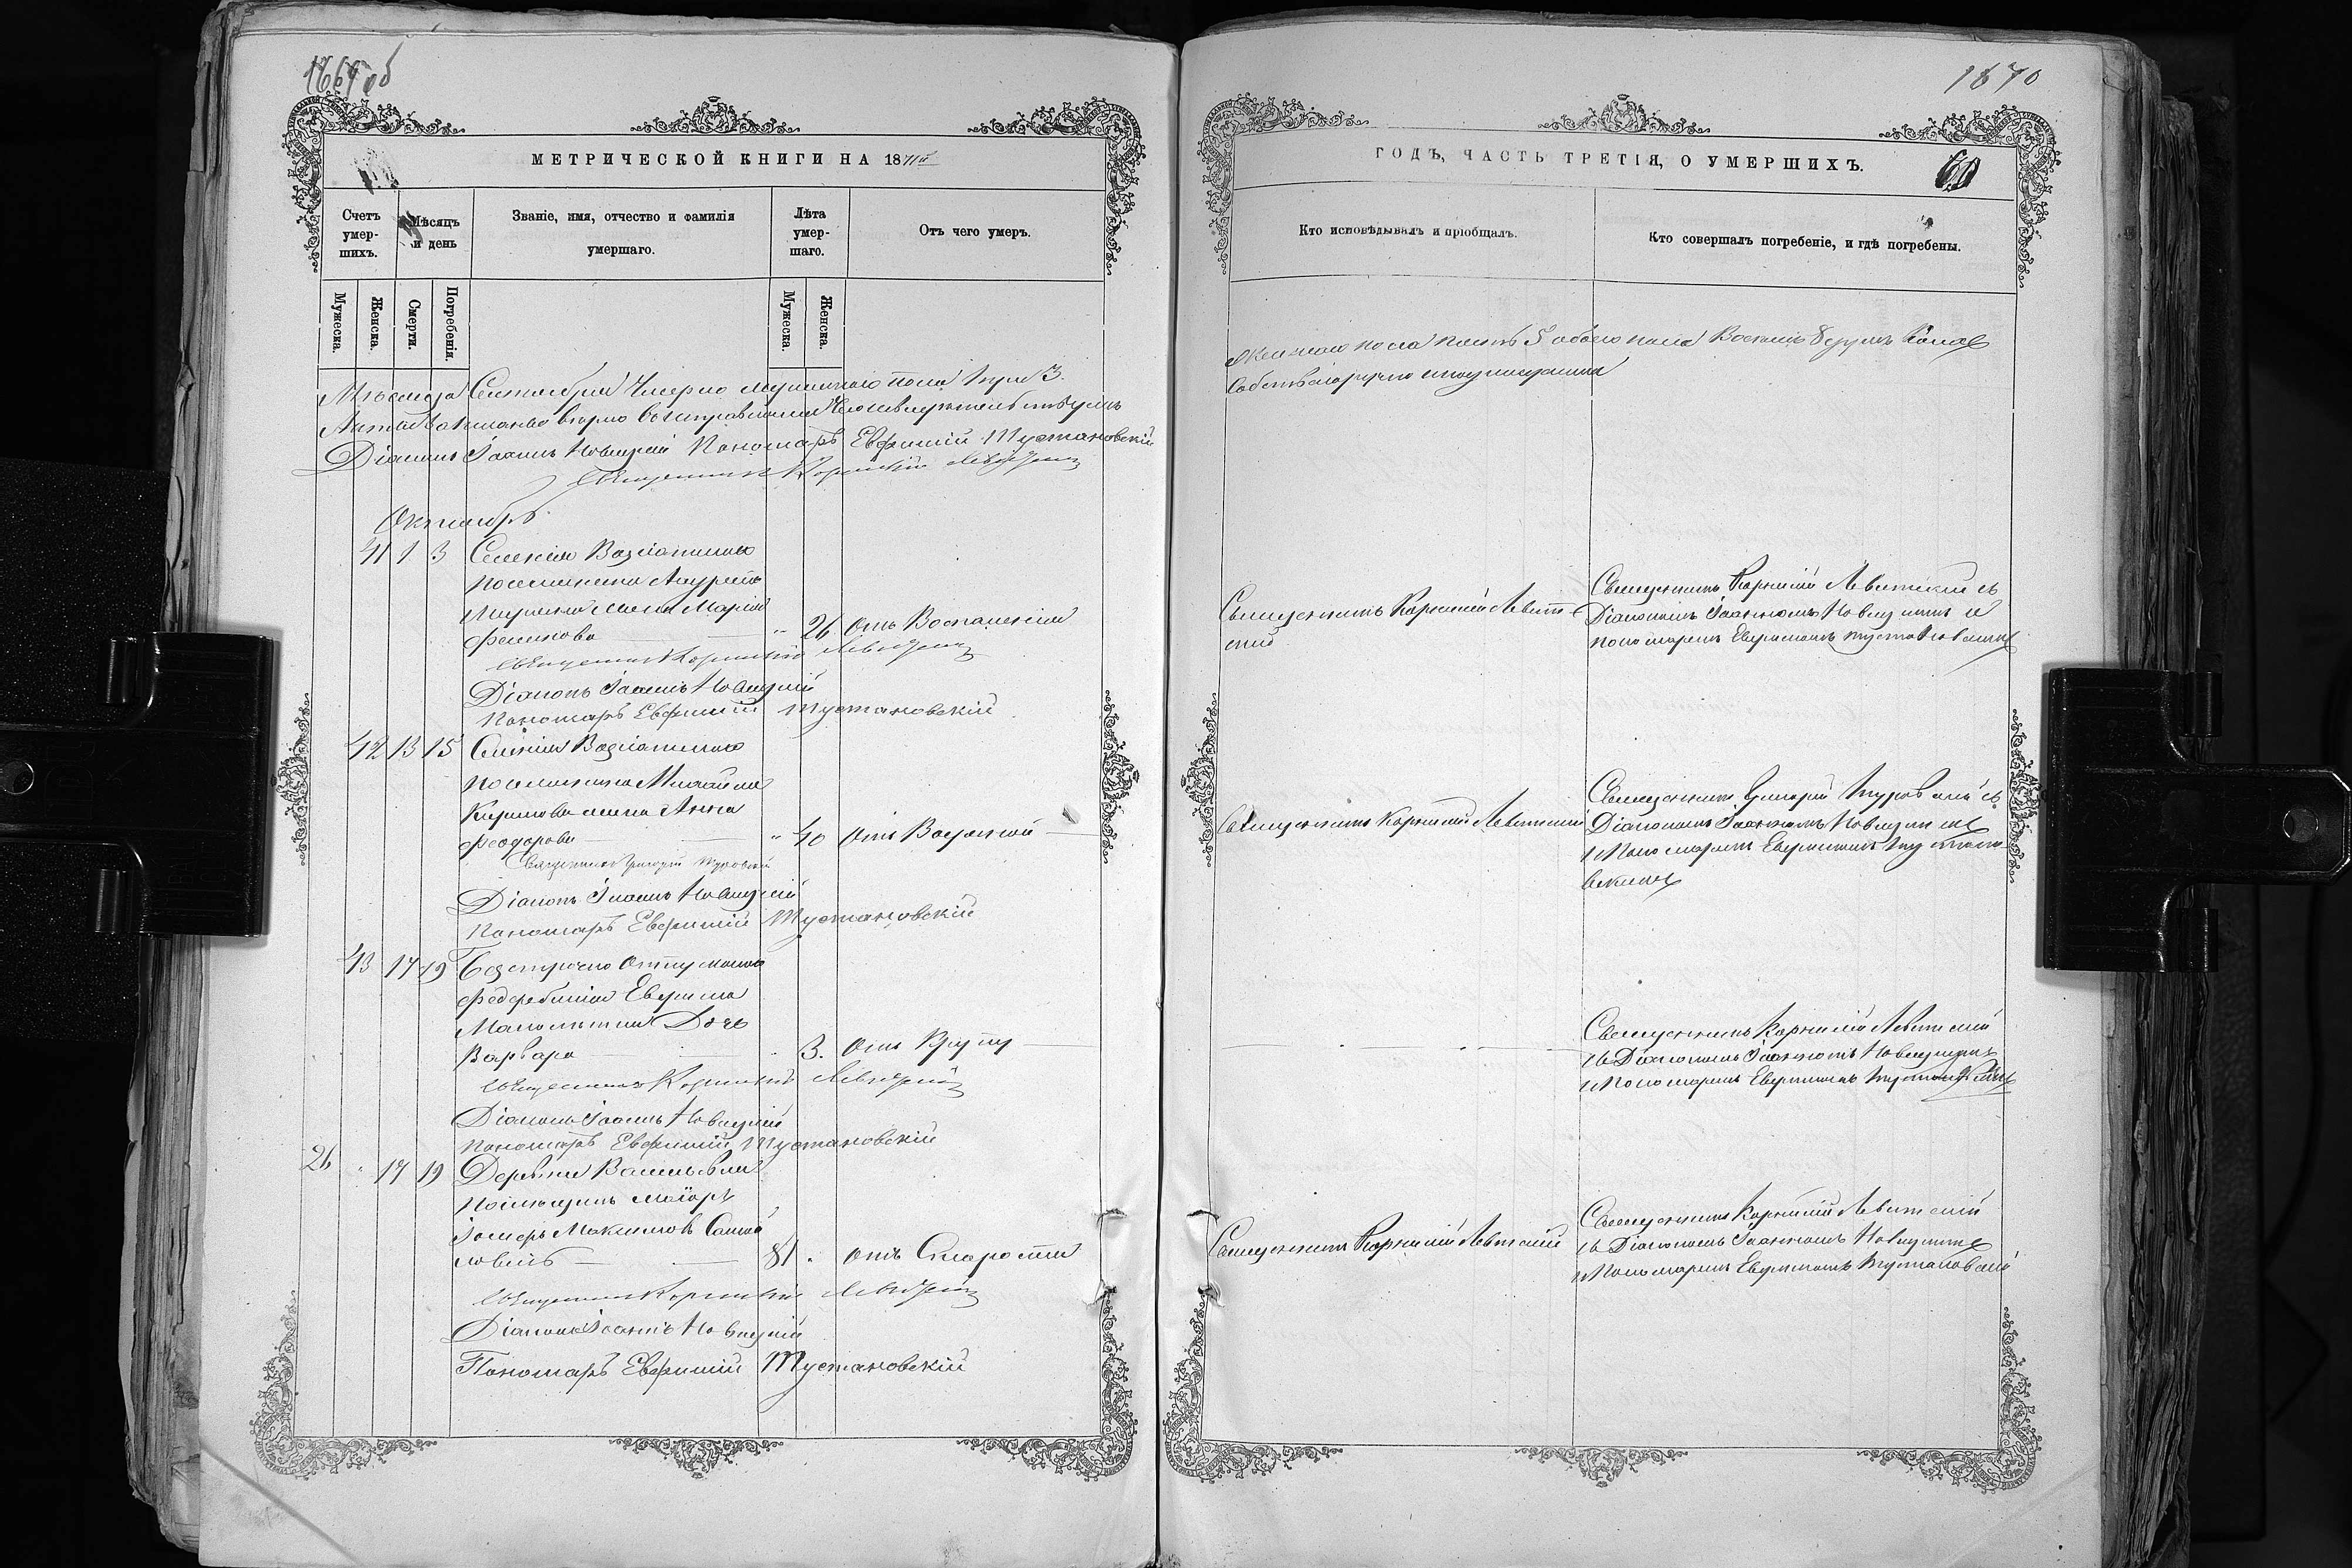 1669 об
МЕТРИЧЕСКОЙ КНИГИ НА 1871й
Счетъ умер-шихъ.
Мѣсяцъ и день
Званіе, имя, отчество и фамилія умершаго.
Лѣта умер-шаго.
Отъ чего умеръ.
Мужеска.
Женска.
Смерти.
Погребенія.
Мужеска.
Женска.
Мѣсяца Сентября Умерло мужескаго пола три 3.
Діаконъ Іоаннъ Новицкій Пономарь Евфимій Тустановскій
Священникъ Корнилій Левитскій
Октябрь
41 1 3 Селенія
поселянина Андрея
жена Марія
26 Отъ Воспаленія
Священникъ Корнилій Левитскій
Діаконъ Іоаннъ Новицкій
Пономарь Евфимій Тустановскій
42 13 15 Селенія
поселянина Михаила
Кирилова жена Анна
Феодорова 40 Отъ Водяной
Священникъ Григорій Туровскій
Діаконъ Іоаннъ Новицкій
Пономарь Евфимій Тустановскій
43 17 19 Безсрочно Отпускнаго
Евфима
Дочь
Варвара 3. Отъ Крупу
Священникъ Корнилій Левитскій
Діаконъ Іоаннъ Новицкій
Пономарь Евфимій Тустановскій
26 17 19 Деревни
помѣщикъ маіоръ
81 Отъ Старости
Священникъ Корнилій Левитскій
Діаконъ Іоаннъ Новицкій
Пономарь Евфимій Тустановскій
1670
ГОДЪ, ЧАСТЬ ТРЕТІЯ, О УМЕРШИХЪ.
60
Кто исповѣдывалъ и пріобщалъ.
Кто совершалъ погребеніе, и гдѣ погребены.
Женскаго пола пять 5 обоего пола Восемь 8 душъ
Священникъ Корнилій Левит-
скій
Священникъ Корнилій Левитскій съ
Діакономъ Іоанномъ Новицкимъ и
пономаремъ Евфиміемъ Тустановскимъ
Священникъ Корнилій Левитскій
Священникъ Григорій Туровскій съ
Діакономъ Іоанномъ Новицкимъ
и Пономаремъ Евфиміемъ Тустано
вскимъ
Священникъ Корнилій Левитскій
съ Діакономъ Іоанномъ Новицкимъ
и Пономаремъ Евфиміемъ Тустановскимъ
Священникъ Корнилій Левитскій
Священникъ Корнилій Левитскій
съ Діакономъ Іоанномъ Новицкимъ
и Пономаремъ Евфиміемъ Тустановскій